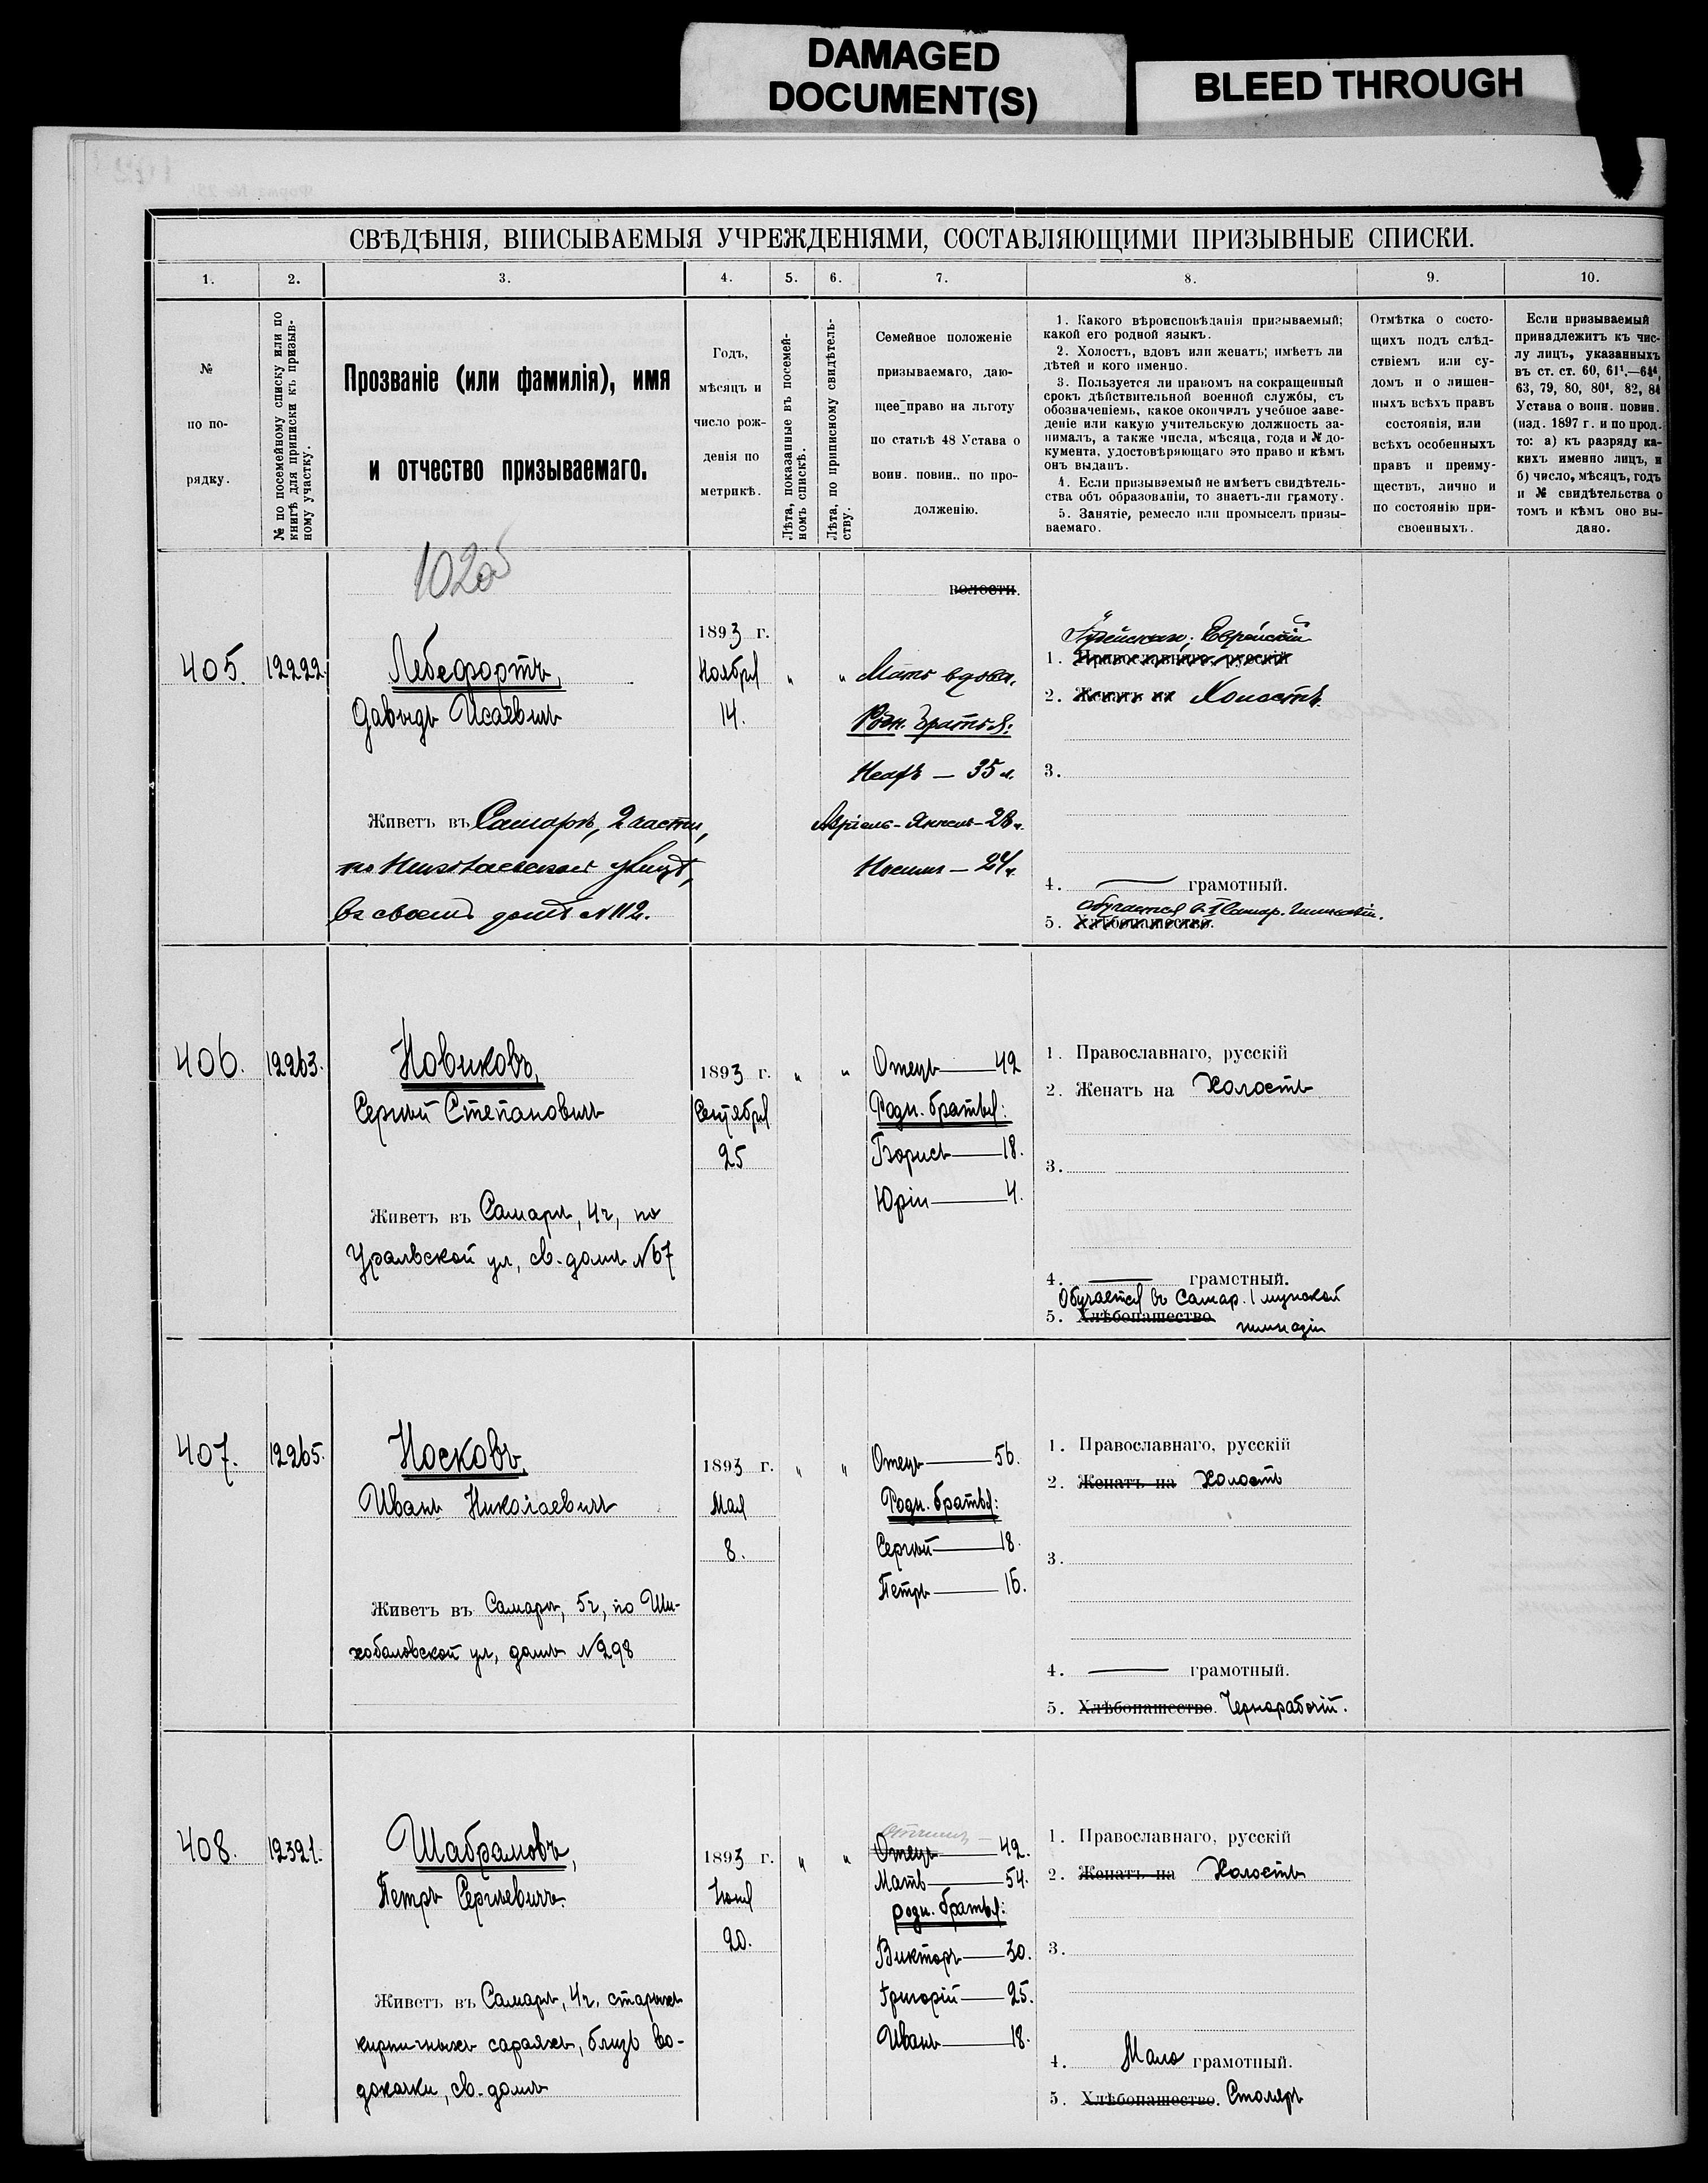 DAMAGED
DOCUMENT(S)
BLEED THROUGH
СВѢДѢНІЯ, ВПИСЫВАЕМЫЯ УЧРЕЖДЕНІЯМИ, СОСТАВЛЯЮЩИМИ ПРИЗЫВНЫЕ СПИСКИ.
1. 2. 3. 4. 5. 6. 7. 8. 9. 10.
№
по по-
рядку.
№ по посемейному списку или по
книгѣ для приписки къ призыв-
ному участку.
Прозваніе (или фамилія), имя
и отчество призываемаго.
Годъ,
мѣсяцъ и
число рож-
денія по
метрикѣ.
Лѣта, показанные въ посемей-
номъ спискѣ.
Лѣта, по приписному свидѣтель-
ству.
Семейное положеніе
призываемаго, даю-
щее право на льготу
по статьѣ 48 Устава о
воин. повин.. по про-
долженію.
1. Какого вѣроисповѣданія призываемый;
какой его родной языкъ.
2. Холостъ, вдовъ или женатъ; имѣетъ ли
дѣтей и кого именно.
3. Пользуется ли правомъ на сокращенный
срокъ дѣйствительной военной службы, съ
обозначеніемъ, какое окончилъ учебное заве-
деніе или какую учительскую должность за-
нималъ, а также числа, мѣсяца, года и № до-
кумента, удостовѣряющаго это право и кѣмъ
онъ выданъ.
4. Если призываемый не имѣетъ свидѣтель-
ства объ образованіи, то знаетъ-ли грамоту.
5. Занятіе, ремесло или промыселъ призы-
ваемаго.
Отмѣтка о состо-
щихъ подъ слѣд-
ствіемъ или су-
домъ и о лишен-
ныхъ всѣхъ правъ
состоянія, или
всѣхъ особенныхъ
правъ и преиму-
ществъ, лично и
по состоянію при-
своенныхъ.
Если призываемый
принадлежитъ къ чис-
лу лицъ, указанныхъ
въ ст. ст. 60, 61¹.—64⁴,
63, 79, 80, 80¹, 82, 84
Устава о воин. повин.
(изд. 1897 г. и по прод.
то: а) къ разряду ка-
кихъ именно лицъ, и
б) число, мѣсяцъ, годъ
и № свидѣтельства о
томъ и кѣмъ оно вы-
дано.
волости.
405. 12222.
Лебефортъ,
Давыдъ Исаевичъ
Живетъ въ Самарѣ, 2 части,
по Николаевской улицѣ,
въ своемъ домѣ №112.
1893 г.
Ноября
14.
" "
Мать вдова.
Родн. братья:
— 35 л.
— 28 л.
— 24 л.
Іудейскаго; Еврейскій
1. Православнаго, русскій
2. Женатъ на Холостъ
3.
4. — грамотный.
Обучается въ 1 Самар. Гимназіи.
5. Хлѣбопашество.
406. 12263.
Новиковъ,
Сергѣй Степановичъ
Живетъ въ Самарѣ, 4ч, по
Уральской ул, св. домъ №67
1893 г.
Сентября
25
" "
Отецъ — 42
Родн. братья:
Борисъ — 18.
Юрій — 4.
1. Православнаго, русскій
2. Женатъ на Холостъ
3.
4. — грамотный.
Обучается въ Самар. 1 мужской
5. Хлѣбопашество
гимназіи
407. 12265.
Носковъ,
Иванъ Николаевичъ
Живетъ въ Самарѣ, 5ч, по Ши-
хобаловской ул, домъ №298
1893 г.
Мая
8.
" "
Отецъ — 56.
Родн. братья:
Сергѣй — 18.
Петръ — 16.
1. Православнаго, русскій
2. Женатъ на Холостъ
3.
4. — грамотный.
5. Хлѣбопашество. Чернорабочій.
408. 12321.
Шабрамовъ,
Петръ Сергѣевичъ.
Живетъ въ Самарѣ, 4ч, старыхъ
кирпичныхъ сараяхъ, близъ во-
докачки, св. домъ
1893 г.
20.
" "
Отчимъ —
Отецъ — 42.
Мать — 54.
родн. братья:
Викторъ — 30.
Григорій — 25.
Иванъ — 18.
1. Православнаго, русскій
2. Женатъ на Холостъ
3.
4. Мало грамотный.
5. Хлѣбопашество. Столяръ